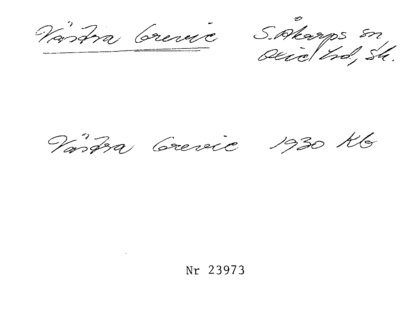 Västra Grevie S. Åkarps sn
Oxie hd, Sk.
Västra Grevie 1930 Kb
Nr 23973